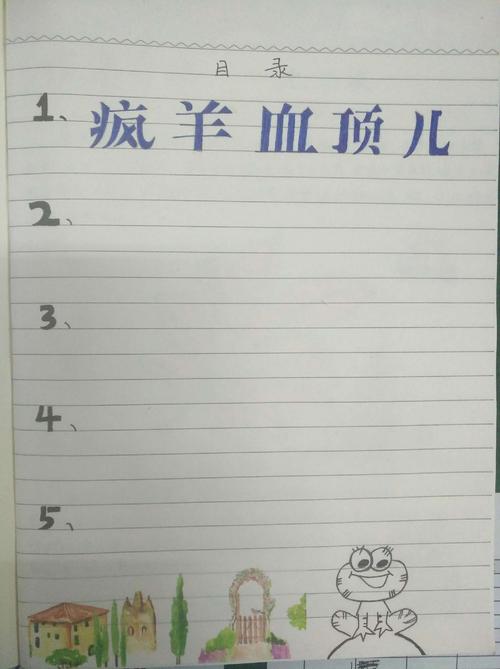 目 录
1、疯羊血顶儿
2、
3、
4、
5、